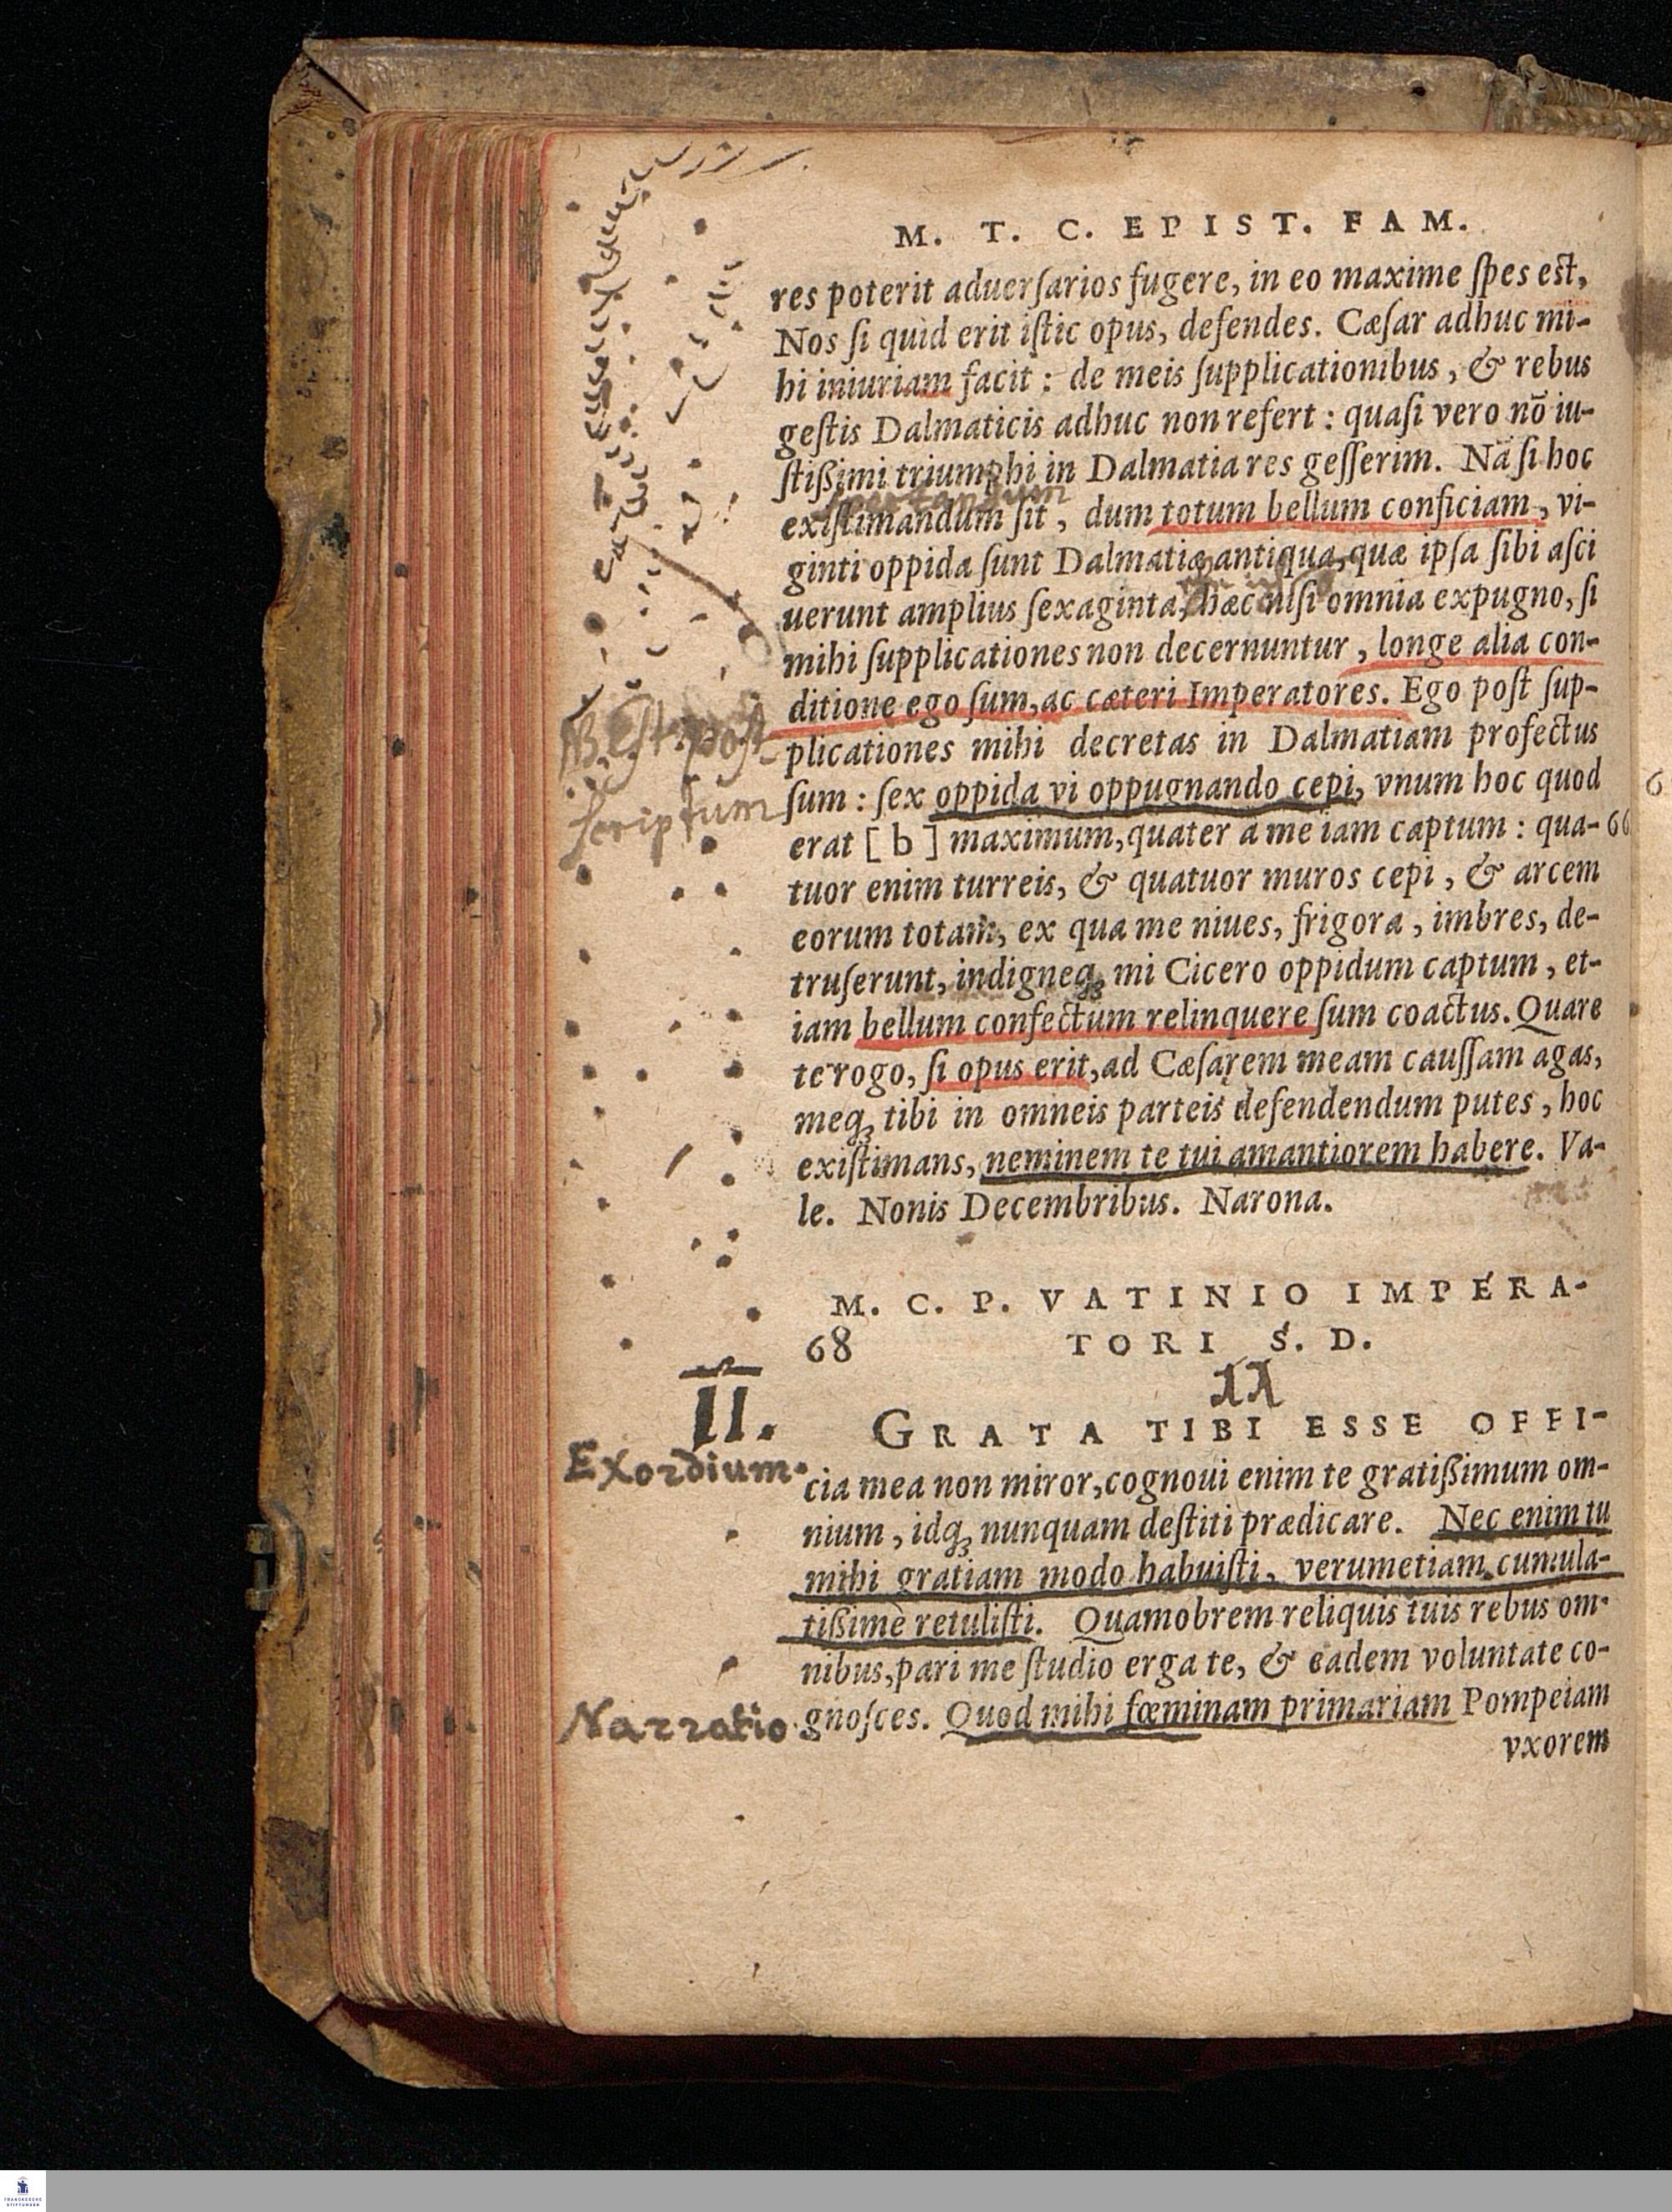 M. T. C. EPIST. FAM.
res poterit aduerſarios fugere, in eo maxime ſpes eſt,
Nos ſi quid erit iſtic opus, defendes. Cæſar adhuc mi-
hi iniuriam facit : de meis ſupplicationibus, & rebus
geſtis Dalmaticis adhuc non refert : quaſi vero nō iu-
ſtißimi triumphi in Dalmatia res geſſerim. Nā ſi hoc
exiſtimandum ſit, dum totum bellum conficiam, vi-
ginti oppida ſunt Dalmatiæ antiqua, quæ ipſa ſibi aſci
uerunt amplius ſexaginta, hæc niſi omnia expugno, ſi
mihi ſupplicationes non decernuntur, longe alia con-
ditione ego ſum, ac cæteri Imperatores. Ego poſt ſup-
NB. Est post
plicationes mihi decretas in Dalmatiam profectus
scriptum
ſum : ſex oppida vi oppugnando cepi, vnum hoc quod
erat [ b ] maximum, quater a me iam captum : qua-
tuor enim turreis, & quatuor muros cepi, & arcem
eorum totam, ex qua me niues, frigora, imbres, de-
truſerunt, indigneq́; mi Cicero oppidum captum, et-
iam bellum confectum relinquere ſum coactus. Quare
te rogo, ſi opus erit, ad Cæſarem meam cauſſam agas,
meq́; tibi in omneis parteis defendendum putes, hoc
exiſtimans, neminem te tui amantiorem habere. Va-
le. Nonis Decembribus. Narona.
M. C. P. VATINIO IMPERA-
68 TORI S. D.
II.
GRATA TIBI ESSE OFFI-
Exordium.
cia mea non miror, cognoui enim te gratißimum om-
nium, idq́; nunquam deſtiti prædicare. Nec enim tu
mihi gratiam modo habuiſti, verumetiam cumula-
tißimè retuliſti. Quamobrem reliquis tuis rebus om-
nibus, pari me ſtudio erga te, & eadem voluntate co-
Narratio
gnoſces. Quod mihi fœminam primariam Pompeiam
vxorem
FRANCKESCHE
STIFTUNGEN